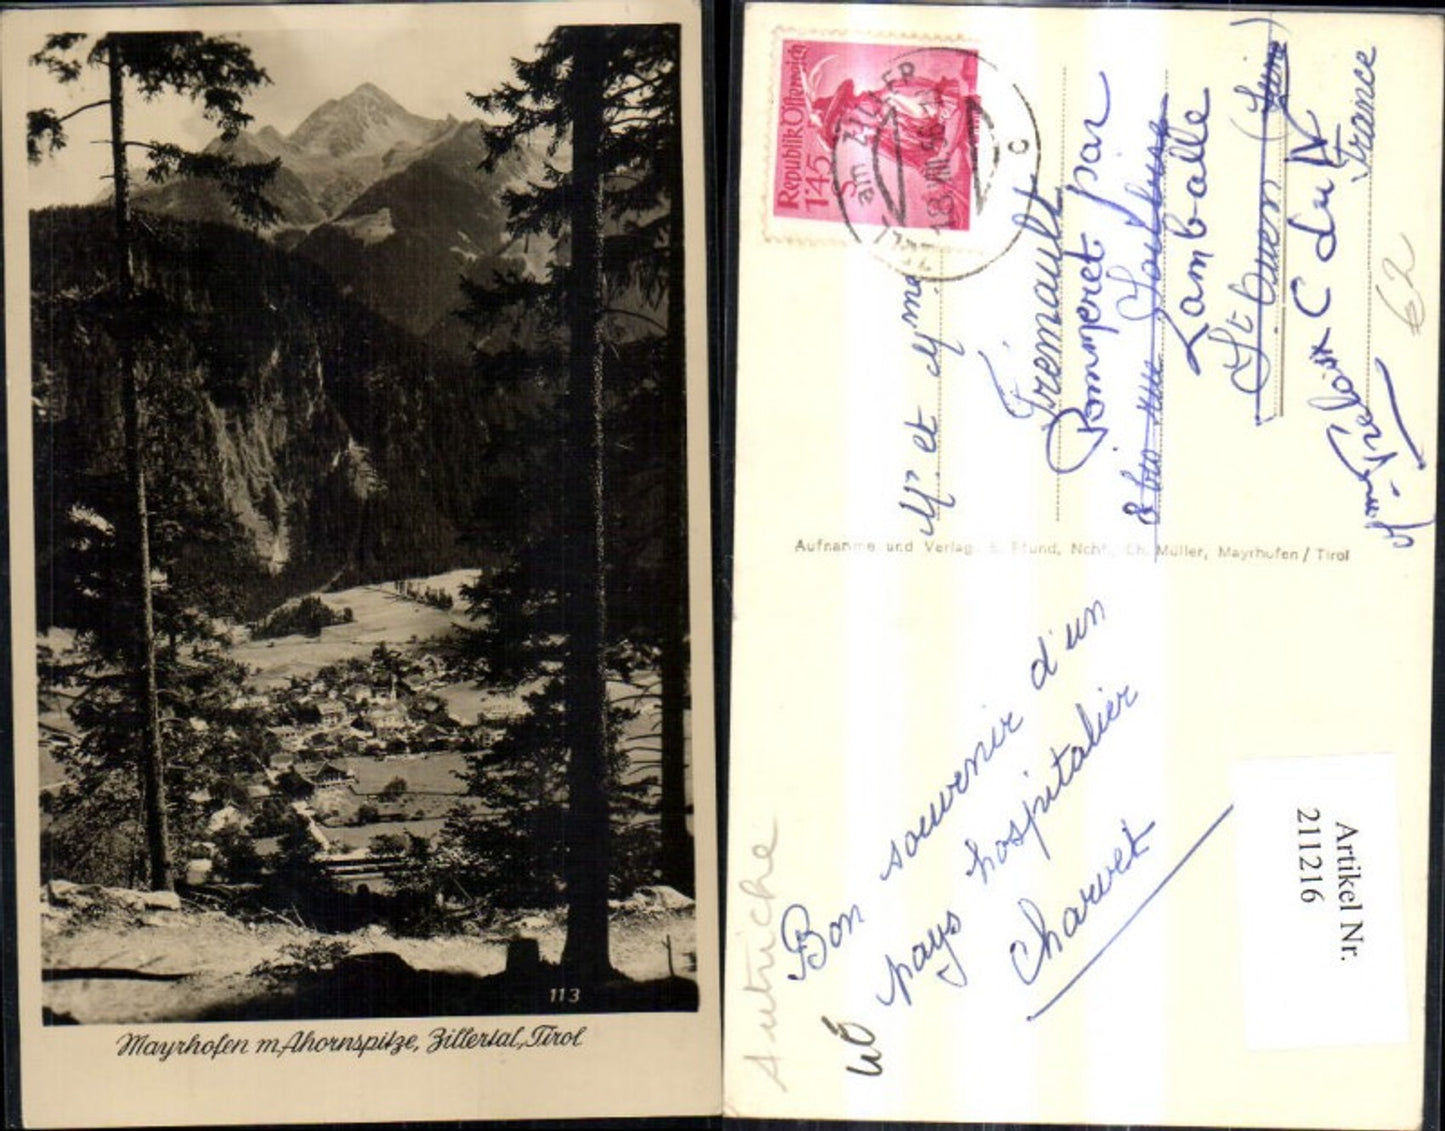 113
Mayrhofen m. Ahornspitze, Zillertal, Tirol
Republik Österreich
1'45
S
am ZILLER
Mr. et Mme
Frémault
Pommeret par
Lamballe
St. Ouen (Seine)
C du N
France
62
Aufnahme und Verlag Pfund, Nchf. Ch. Müller, Mayrhofen / Tirol
Bon souvenir d'un
pays hospitalier
Charvet
Autriche
Artikel Nr.
211216